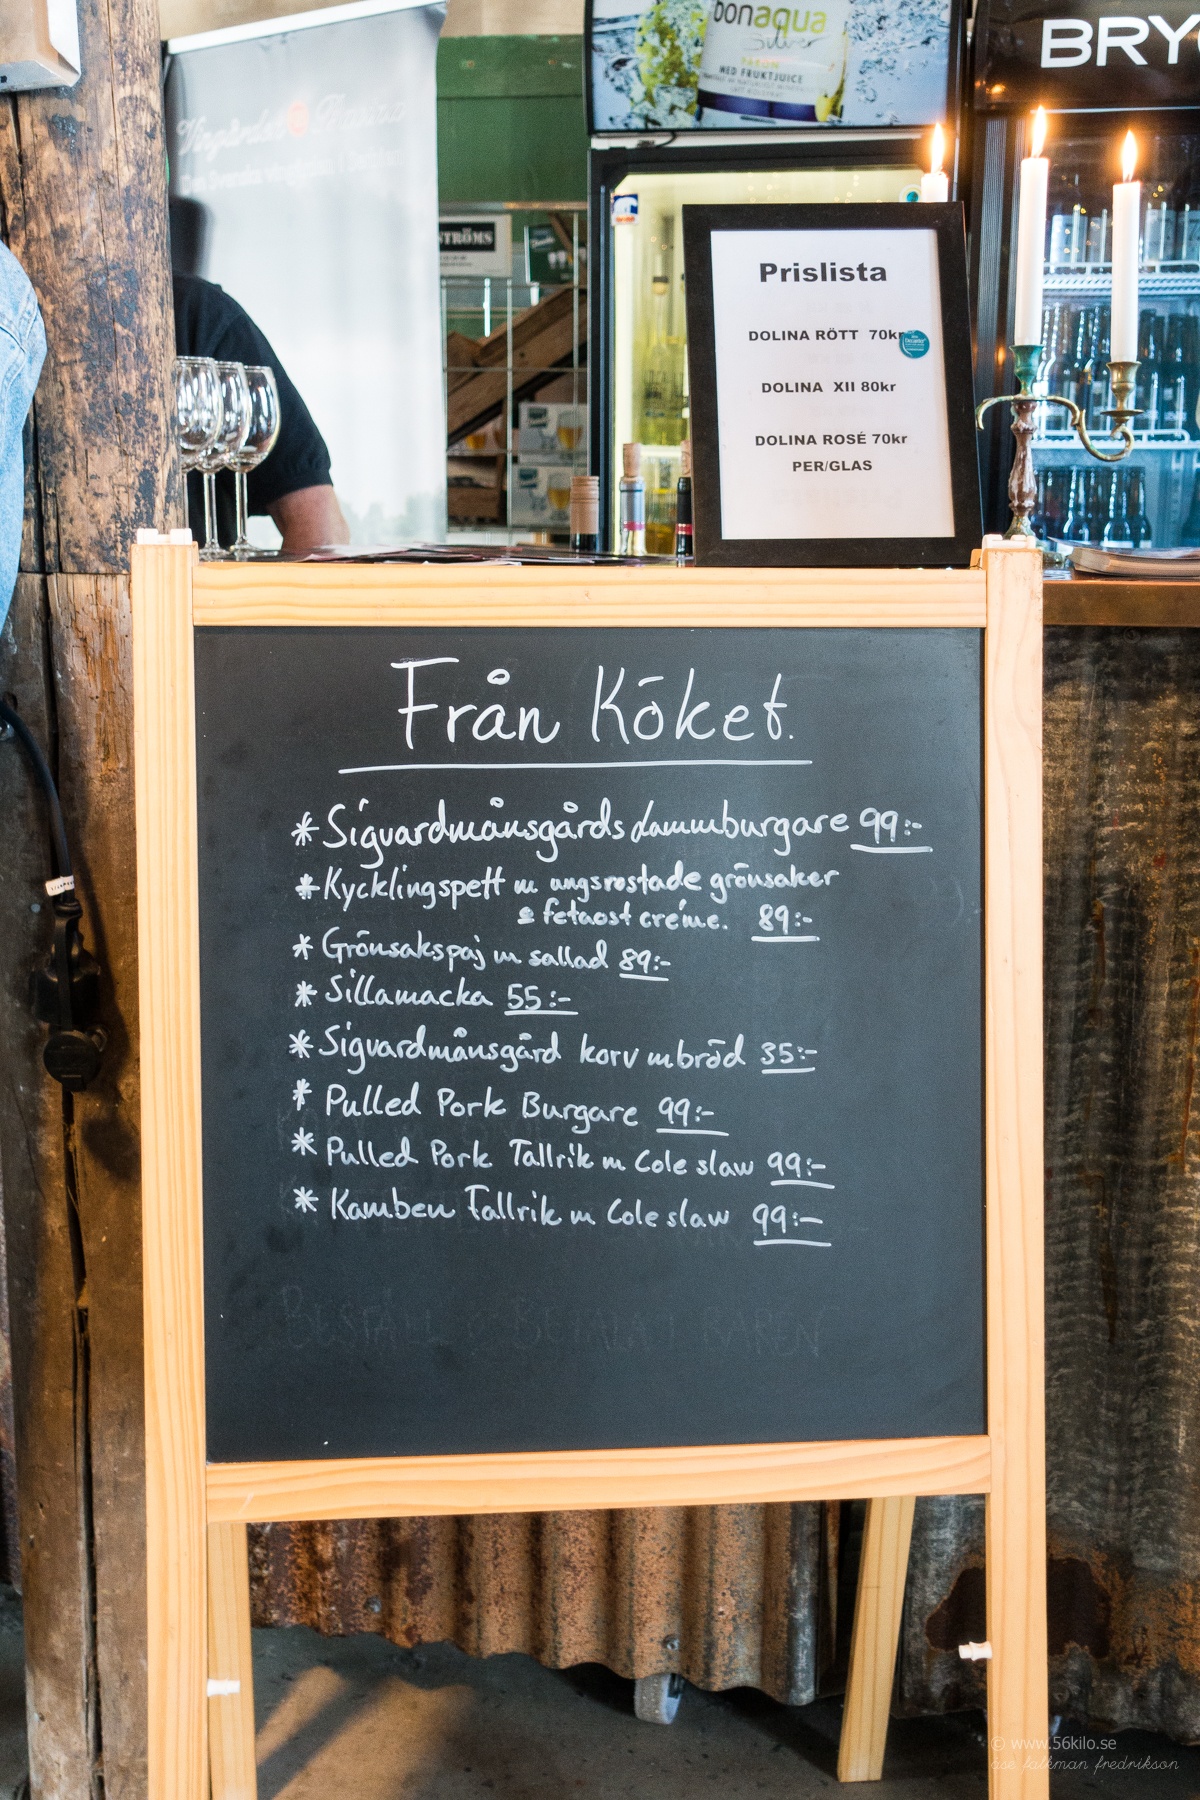 bonaqua
Silver
PÄRON
MED FRUKTJUICE
BRY
STRÖMS
Prislista
DOLINA RÖTT 70kr
DOLINA XII 80kr
DOLINA ROSÉ 70kr
PER/GLAS
Från Köket.
* Sigvardmånsgårds lammburgare 99:-
* Kycklingspett m ungsrostade grönsaker
& fetaost creme. 89:-
* Grönsakspaj m sallad 89:-
* Sillamacka 55:-
* Sigvardmånsgård korv m bröd 35:-
* Pulled Pork Burgare 99:-
* Pulled Pork Tallrik m Cole slaw 99:-
* Kamben Tallrik m Cole slaw 99:-
BESTÄLL & BETALA I BAREN
© www.56kilo.se
åse falkman fredrikson